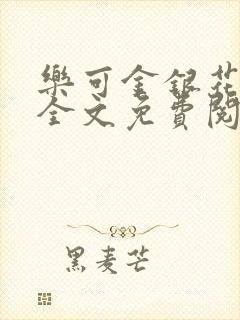 樂可金銀花
全文免費閱
黑麦芒